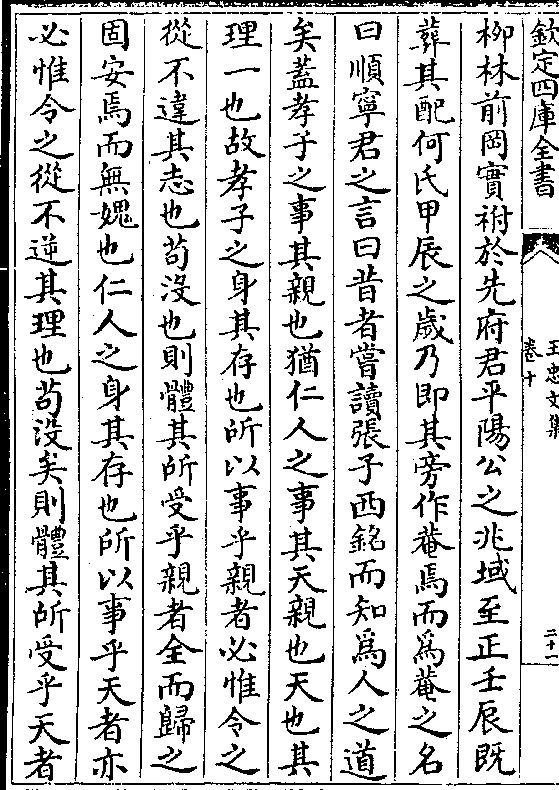 欽定四庫全書
王忠文集
卷十
二十一
柳林前岡實祔於先府君平陽公之兆域至正壬辰既
葬其配何氏甲辰之歲乃即其旁作菴焉而為菴之名
曰順寧君之言曰昔者嘗讀張子西銘而知為人之道
矣蓋孝子之事其親也猶仁人之事其天親也天也其
理一也故孝子之身其存也所以事乎親者必惟令之
從不違其志也苟沒也則體其所受乎親者全而歸之
固安焉而無媿也仁人之身其存也所以事乎天者亦
必惟令之從不逆其理也苟沒矣則體其所受乎天者